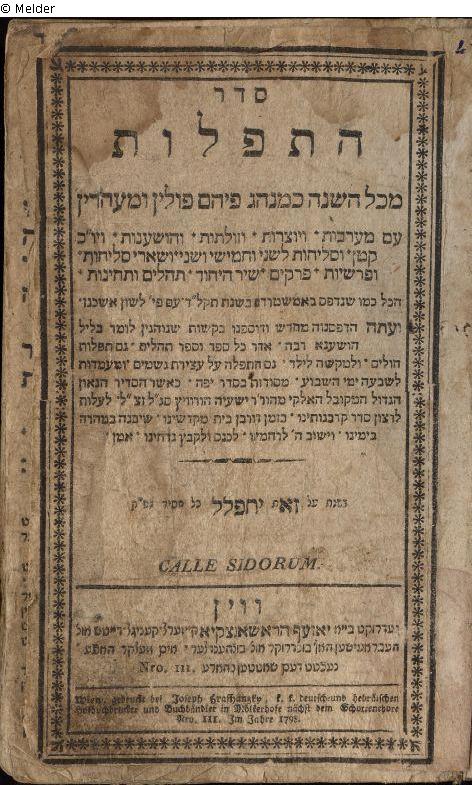 © Melder
2
סדר
התפלות
מכל השנה כמנהג פיהם פולין ומעהרין
עם מערבות ויוצרות וזולתות והושענות ויו"כ
קטן וסליחות לשני וחמישי ושני ושארי סליחות
ופרשיות פרקים שיר היחוד תהלים ותחינות
הכל כמו שנדפס באמשטרדם בשנת תקל"ד עם פי' לשון אשכנז
ועתה הדפסנוה מחדש והוספנו בקשות שנוהגין לומר בליל
הושענא רבה אחר כל ספר וספר תהלים גם תפלות
חולים ולמקשה לילד גם התפלה על עצירת גשמים ומעמדות
לשבעה ימי השבוע מסודרות בסדר יפה כאשר הסדיר הגאון
הגדול המקובל האלקי מהור"ר ישעיה הורוויץ סג"ל זצ"ל לעלות
לרצון סדר קרבנותינו בזמן חורבן בית מקדשינו שיבנה במהרה
בימינו וישוב ה' לרחמינו לכנס ולקבץ נדחינו אמן
בשנת על זאת יתפלל כל חסיד לפ"ק
CALLE SIDORUM.
ווין
געדרוקט ביי יאזעף הראשאנצקי קייזערל קעניגל דייטש אונד
Nro. III.
Wien, gedruckt bei Joseph Hraschanzky, k. k. deutsch-und hebräischen
Hofbuchdrucker und Buchhändler in Mölkerhofe nächst dem Schottenthore
Nro. III. Im Jahre 1798.